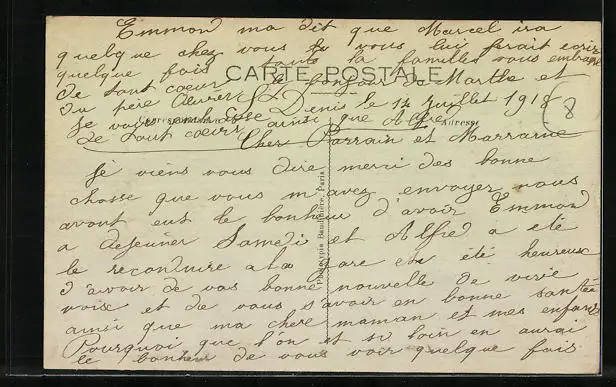 Emmond ma dit que Marcel ira
quelque chez vous vous lui ferait ecrire
quelque fois toute la familles vous embrasse
CARTE POSTALE
de tout coeur bonjour de Marthe et
du père
St Denis le 14 juillet 1918
8
Je vous embrasse
de tout coeurs ainsi que Alfred
Adresse
Cher Parrain et Marraine
Je viens vous dire merci des bonne
chosse que vous m'avez envoyer nous
avont eut le bonheur d'avoir Emmond
a dejeuner Samedi et Alfred a eté
le reconduire a la gare eu eté heureux
d'avoir de vos bonne nouvelle de vivé
voix et de vous s'avoir en bonne santée
ainsi que ma chere maman et mes enfants
Pourquoi que l'on et si loin en aurai
le bonheur de vous voir quelque fois
Phototypie Baudinière, Paris